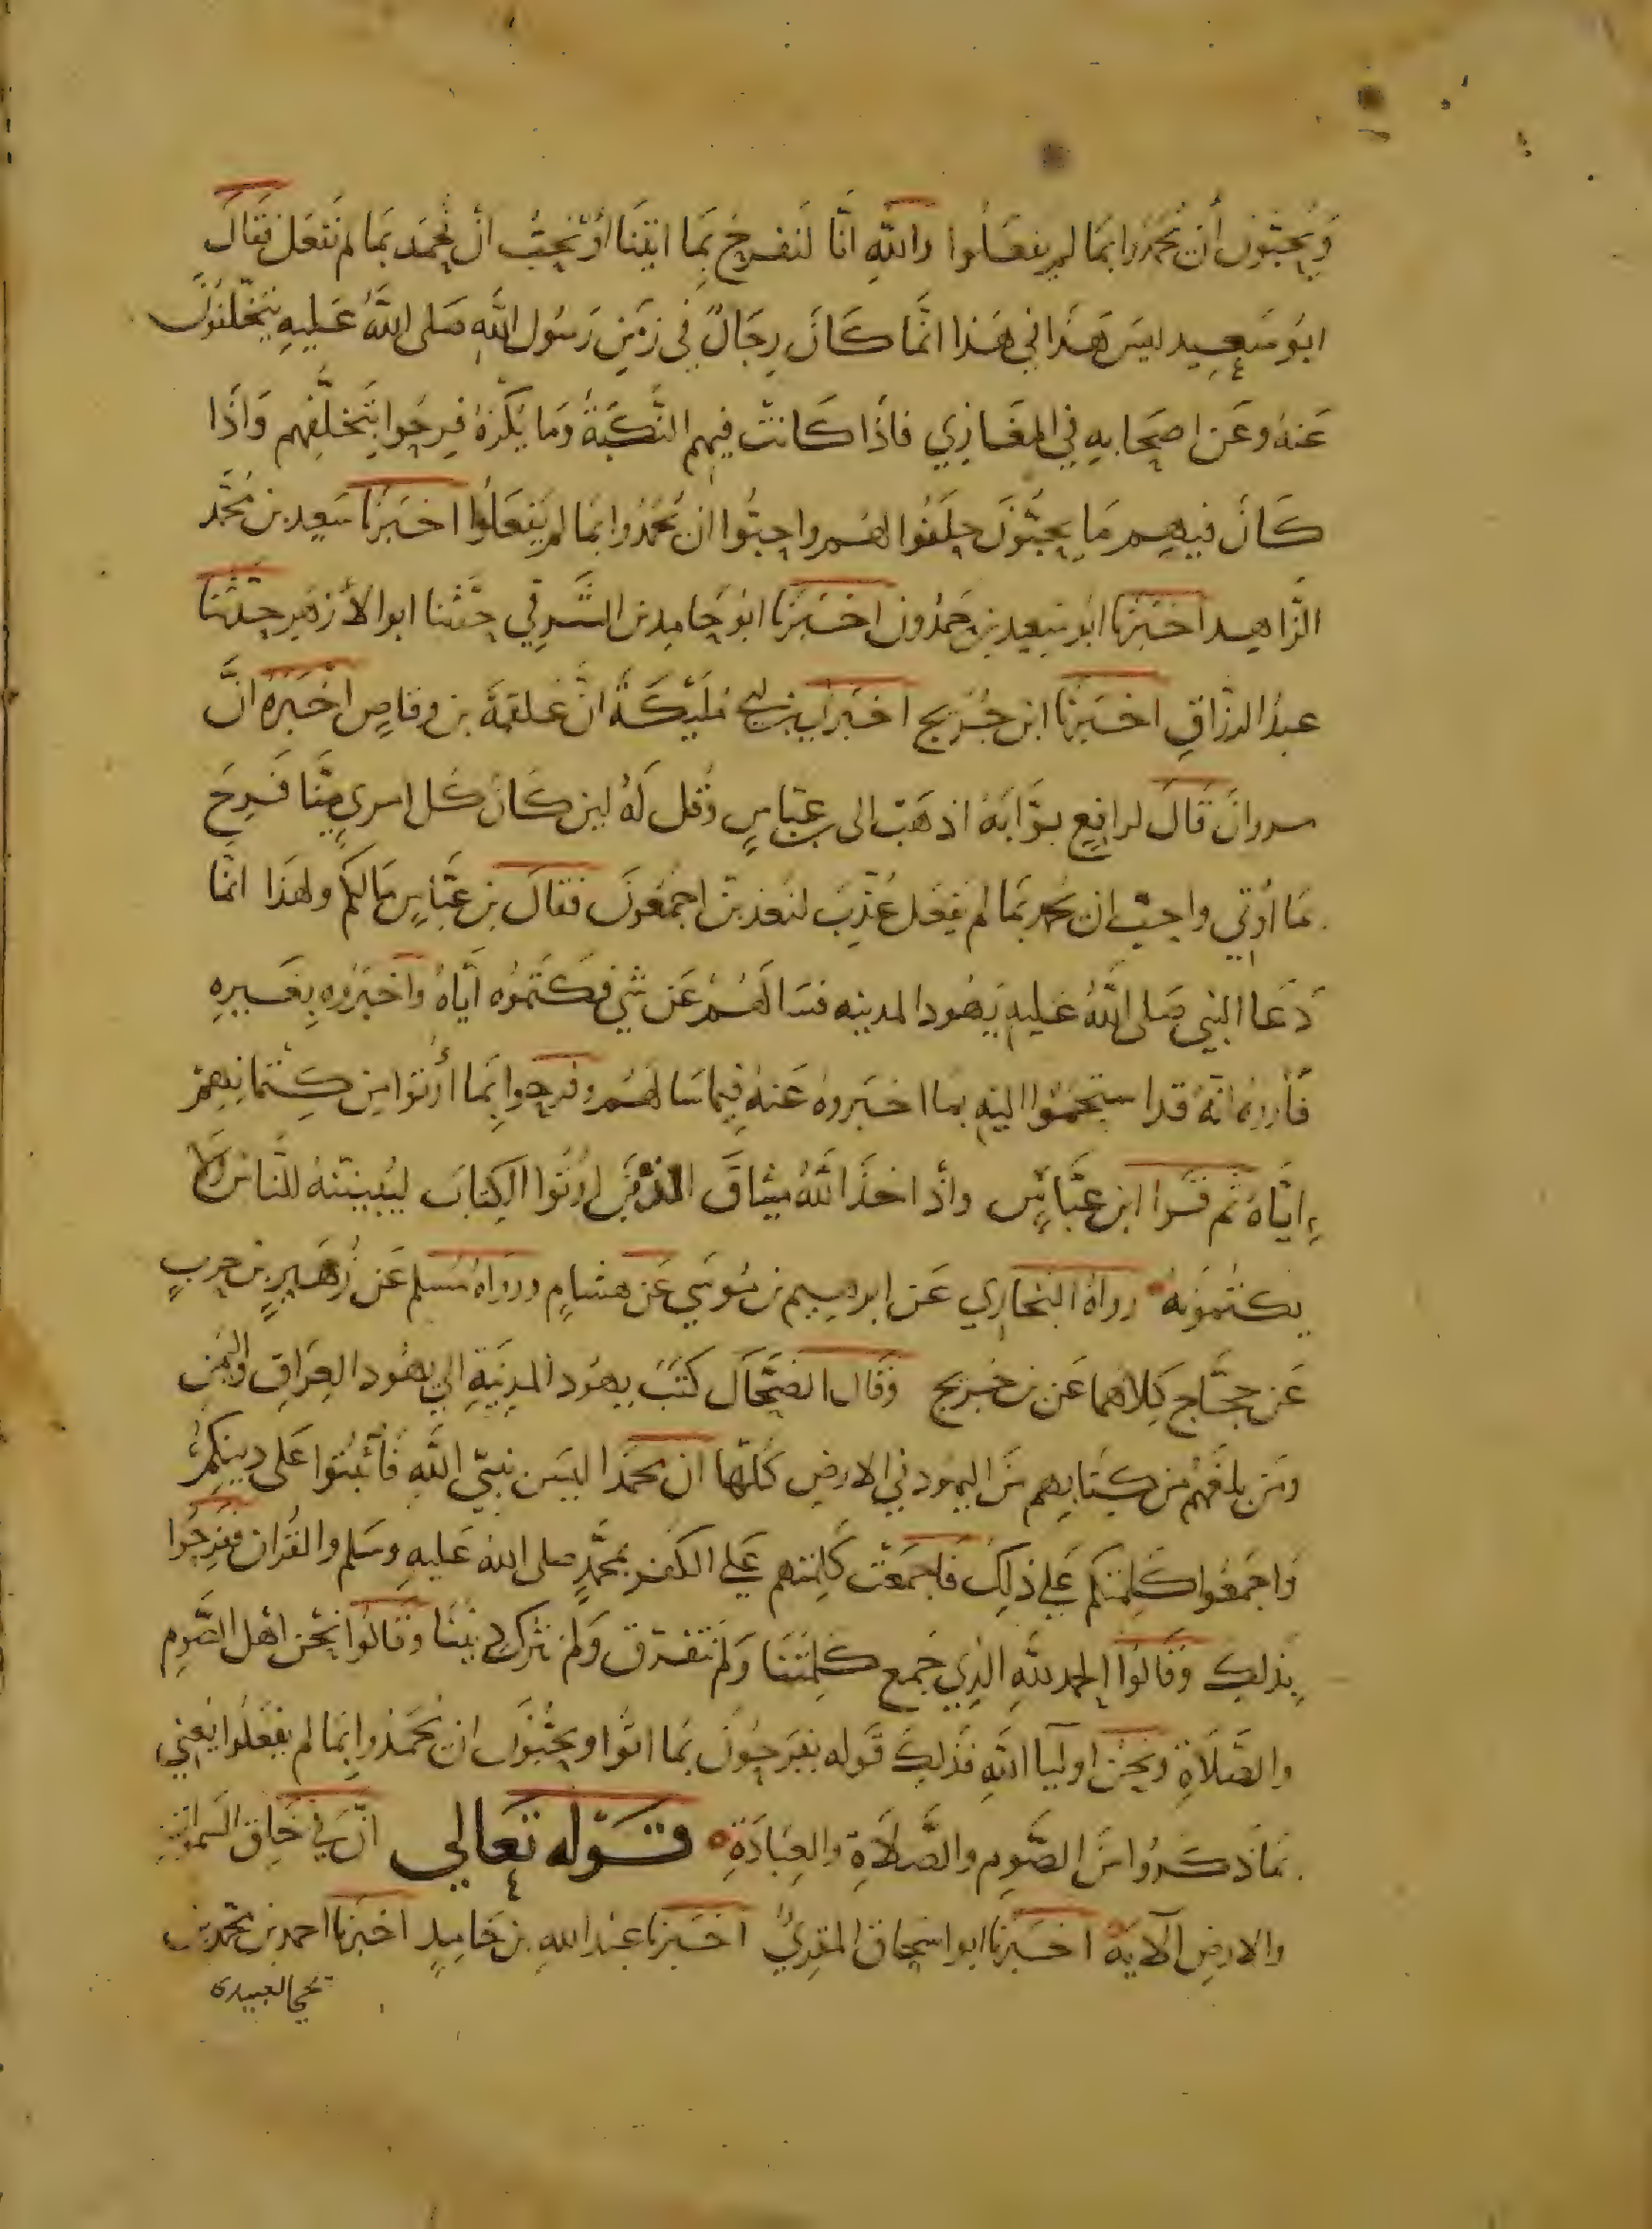 وَيُحِبّوُن أن يُحمَدُوا بمَا لم يفعَلُوا والله انَّا لَنفرحُ بمَا اتيَنَا اوْ نُحِبُّ انْ نُحمَد بمَا لم نَفعَل فقالَ
ابُو سَعِيد ليسَ هَذا في هَذا انَّما كَانَ رجَالٌ في زمَنِ رَسُول اللهِ صَلى اللهُ عَليهِ يتخَلّفوُنَ
عَنهُ وعَن اصحَابهِ في المغَازِي فاذَا كَانتْ فيهم النَّكبَةُ وَمَا يُكرَهُ فرِحُوا بتَخلُّفِهم وَاذَا
كَانَ فيهِم مَا يحِبُّونَ حلَفُوا لهُم واحبُّوا ان يُحمَدُوا بمَا لم يفعَلُوا اخبَرَنَا سَعيد بن محُمَّد
الزَّاهِد اخبَرَنا ابُو سَعِيد بن حَمدُون اخبَرَنا ابوُ حَامِد بن الشَّرقي حدَّثنا ابو الأزهَر حدّثنا
عبدُ الرزّاقِ اخبَرَنا ابن جُرَيج اخبَرَني بن ابي مُلَيْكَةَ انَّ عَلقمَةَ بن وقاصٍ اخبَرَهُ انَّ
مروانَ قَالَ لرافعٍ بوَّابَهُ اذهَبْ الى بن عبَّاسٍ وقُل لَهُ لين كَانَ كُل امرىٍ مِنَّا فَرِحَ
بمَا أوتي واحبّ ان يُحمد بمَا لم يَفعَل عُذّبَ لنعَذبنّ اجمَعُونَ فقَالَ بن عبَّاسٍ مَا لكُم ولهَذا انمَّا
دَعَا النبي صَلى اللهُ عَليهِ يَهُود المدينه فسَالَهُمْ عَن شي فكَتَمُوه ايَّاهُ واخبَرُوهِ بِغَيرِهِ
فأرَوهُ انّهُ قد استحمَدُوا اليهِ بما اخبَروهُ عَنهُ فِيما سَالَهُم وفرِحُوا بِمَا أُوتوا مِن كِتمَانِهِمْ
ايّاهُ ثم قَرا ابن عبَّاسٍ واذْ اخذَ اللهُ ميثاقَ الذينَ اوُتُوا الكِتابَ ليُبَيننّهُ للنَّاس ولا
يكتُموُنَهُ رواهُ البخاري عَن ابرهِيم بن مُوسَي عَن هشامٍ ورواهُ مُسلم عَن زُهَيرٍ بن حربٍ
عَن حجَّاجٍ كِلاهُما عَن بن جُرَيج وقَال الضحَّاك كتَبَ يهوُد المدِينَةِ الي يهُود العِرَاقِ واليَمَن
ومَن بلغَهُم من كِتَابِهم منَ اليهود في الارضِ كُلهّا ان محَمَدا ليسَ نَبيّ اللهِ فَاثبتُوا عَلى دينِكُمُ
وَاجمعُوا كلِمَتكم عَلي ذلِكَ فَاجمعَتْ كَلِمَتهم عَلي الكفر بمُحَمَّدٍ صلى الله عَليهِ وسَلم والقُران ففرِحُوا
بذلِكَ وقَالوُا الحمد للّهِ الذِي جَمعَ كلِمَتَنَا وَلمَ نَتفَرق وَلم نترك دينَنَا وقَالوُا نحْن اهْل الصَّومِ
والصَّلاةِ ونحْن اوليآ اللهِ فذلِكَ قَوله يفرَحوُنَ بمَا اتَوُا ويحبُّونَ ان يُحمَدوا بِمَا لم يفعَلُوا يَعني
بمَا ذكَرُوا منَ الصَّومِ والصَّلاةِ والعِبَادَةِ قَوْله تعَالي انّ في خَلقِ السَمواتِ
والارضِ الآيَة اخبَرَنا ابو اسحَاق المقرِيُّ اخبَرَنا عبْدُ اللهِ بن حَامِدٍ اخبَرنا احمد بن محمّد بن
يحيي العبيدى